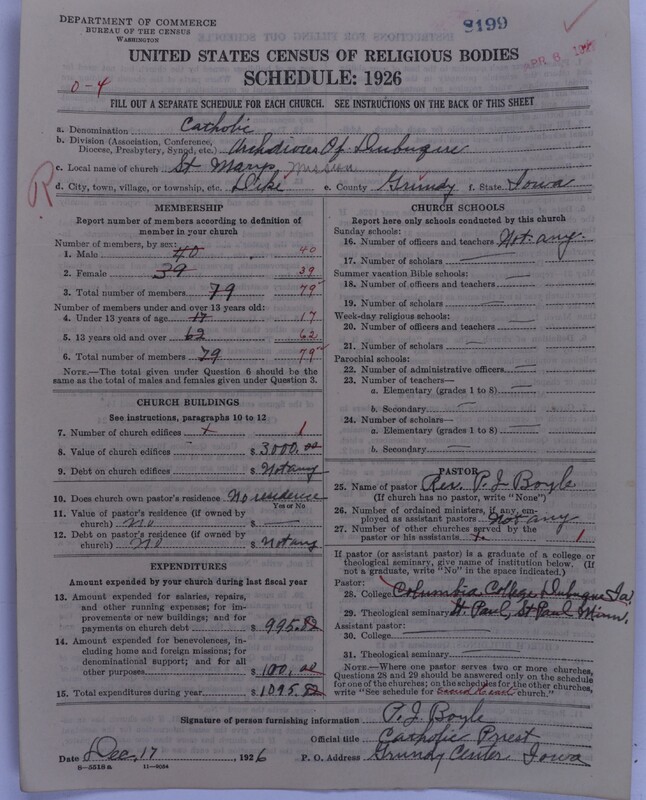 DEPARTMENT OF COMMERCE
BUREAU OF THE CENSUS
WASHINGTON
8199
APR 8
UNITED STATES CENSUS OF RELIGIOUS BODIES
SCHEDULE: 1926
0-4
FILL OUT A SEPARATE SCHEDULE FOR EACH CHURCH. SEE INSTRUCTIONS ON THE BACK OF THIS SHEET
a. Denomination Catholic
b. Division (Association, Conference, Diocese, Presbytery, Synod, etc.) Archdiocese Of Dubuque
c. Local name of church St Marys Mission
d. City, town, village, or township, etc. Dike e. County Grundy f. State Iowa
R
MEMBERSHIP
Report number of members according to definition of
member in your church
Number of members, by sex:
1. Male 40 40
2. Female 39 39
3. Total number of members 79 79
Number of members under and over 13 years old:
4. Under 13 years of age 17 17
5. 13 years old and over 62 62
6. Total number of members 79 79
NOTE.—The total given under Question 6 should be
same as the total of males and females given under Question 3.
CHURCH BUILDINGS
See instructions, paragraphs 10 to 12
7. Number of church edifices 1
8. Value of church edifices $ 3000.00
9. Debt on church edifices $ Not any
10. Does church own pastor's residence No residence
Yes or No
11. Value of pastor's residence (if owned by
church) No $
12. Debt on pastor's residence (if owned by
church) No $ Not any
EXPENDITURES
Amount expended by your church during last fiscal year
13. Amount expended for salaries, repairs,
and other running expenses; for im-
provements or new buildings; and for
payments on church debt $ 995.82
14. Amount expended for benevolences, in-
cluding home and foreign missions; for
denominational support; and for all
other purposes $ 100.00
15. Total expenditures during year $ 1095.82
CHURCH SCHOOLS
Report here only schools conducted by this church
Sunday schools:
16. Number of officers and teachers Not any.
17. Number of scholars
Summer vacation Bible schools:
18. Number of officers and teachers
19. Number of scholars
Week-day religious schools:
20. Number of officers and teachers
21. Number of scholars
Parochial schools:
22. Number of administrative officers
23. Number of teachers—
a. Elementary (grades 1 to 8)
b. Secondary
24. Number of scholars—
a. Elementary (grades 1 to 8)
b. Secondary
PASTOR
25. Name of pastor Rev. P. J Boyle
(If church has no pastor, write "None")
26. Number of ordained ministers, if any, em-
ployed as assistant pastors Not any
27. Number of other churches served by the
pastor or his assistants 1
If pastor (or assistant pastor) is a graduate of a college or
theological seminary, give name of institution below. (If
not a graduate, write "No" in the space indicated.)
Pastor:
28. College Columbia College, Dubuque Ia.
29. Theological seminary St. Paul, St Paul, Minn.
Assistant pastor:
30. College
31. Theological seminary
NOTE.—Where one pastor serves two or more churches,
Questions 28 and 29 should be answered only on the schedule
for one of the churches; on the schedule for the other churches,
write "See schedule for Sacred Heart church."
Signature of person furnishing information P. J Boyle
Official title Catholic Priest
Date Dec. 17, 1926 P. O. Address Grundy Center, Iowa
8—5518a 11—9024